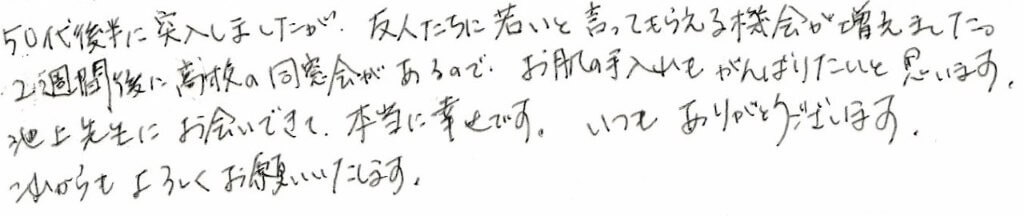 50代後半に突入しましたが、友人たちに若いと言ってもらえる機会が増えました。
2週間後に高校の同窓会があるので、お肌の手入れもがんばりたいと思います。
池上先生にお会いできて、本当に幸せです。いつもありがとうございます。
これからもよろしくお願いいたします。